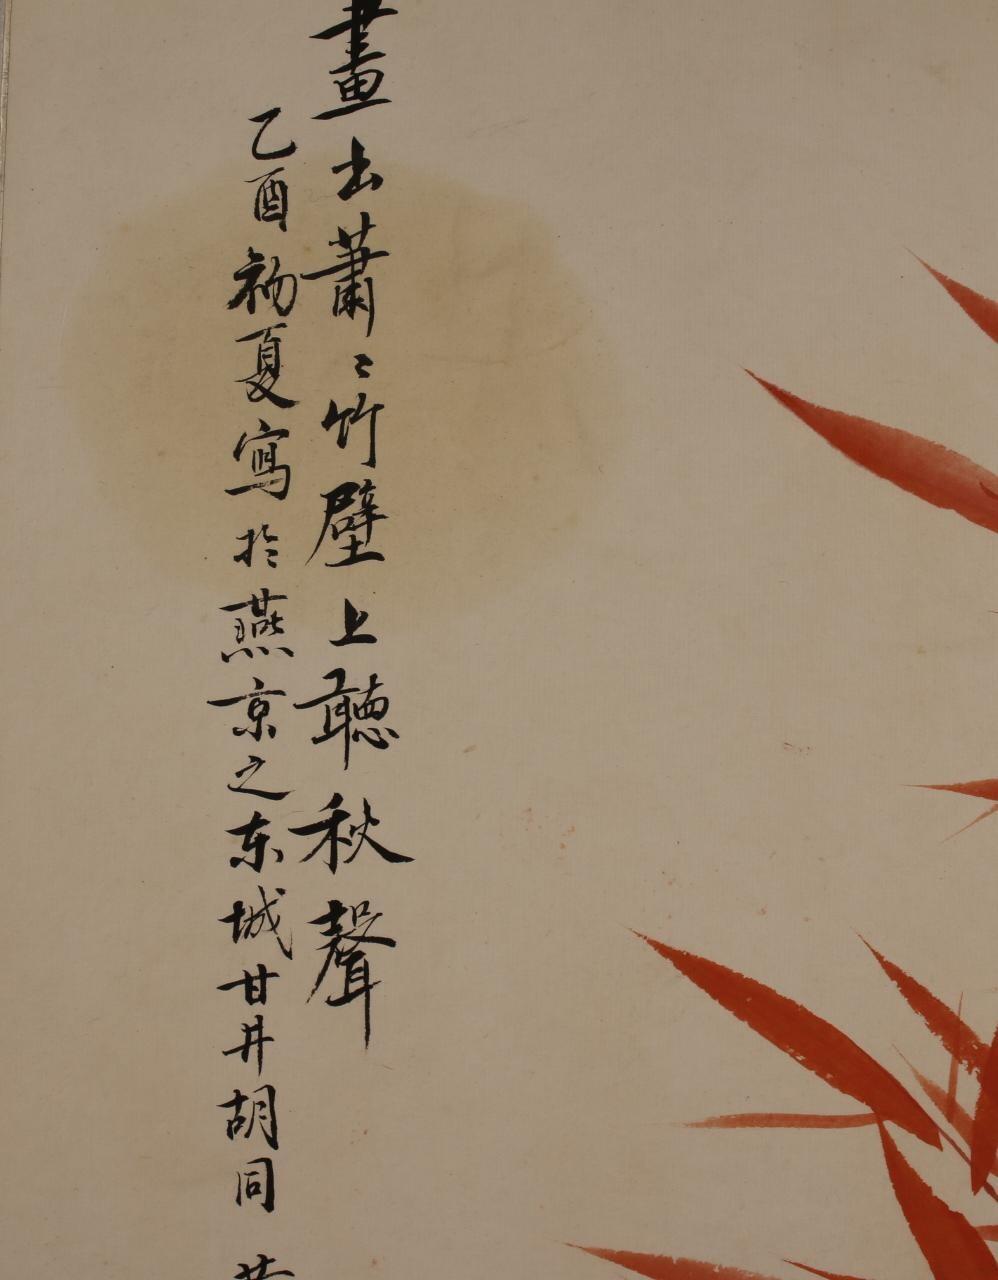 畫出蕭〻竹壁上聽秋聲
乙酉初夏寫於燕京之东城甘井胡同